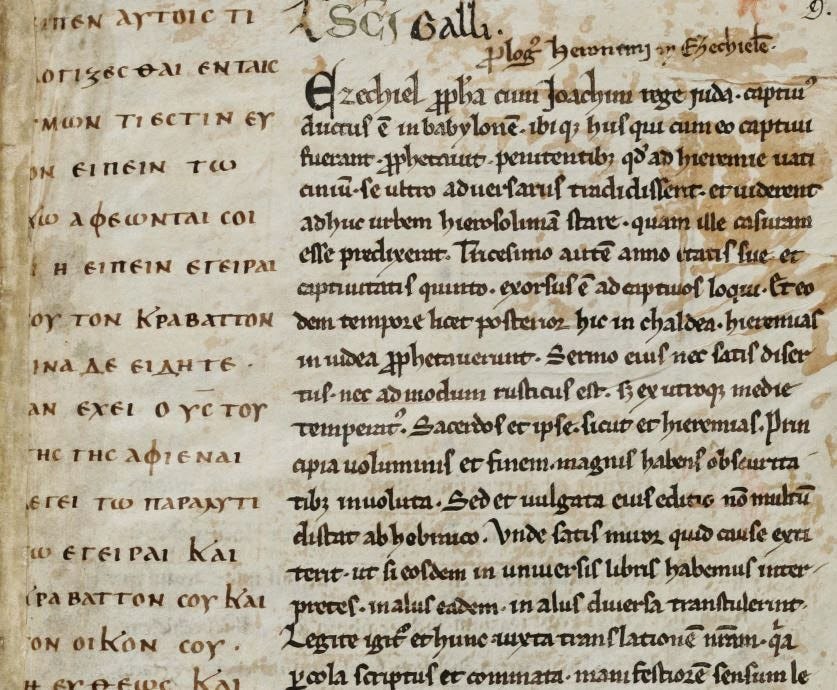 ΙΠΕΝ ΑΥΤΟΙC ΤΙ
ΛΟΓΙΖΕCΘΑΙ ΕΝΤΑΙC
ΥΜΩΝ ΤΙ ΕCΤΙΝ ΕΥ
ΟΝ ΕΙΠΕΙΝ ΤΩ
ΧΩ ΑΦΕΩΝΤΑΙ CΟΙ
Η ΕΙΠΕΙΝ ΕΓΕΙΡΑΙ
ΟΥ ΤΟΝ ΚΡΑΒΑΤΤΟΝ
ΙΝΑ ΔΕ ΕΙΔΗΤΕ ·
ΑΝ ΕΧΕΙ Ο Υ̅C̅ ΤΟΥ
ΤΗC ΓΗC ΑΦΙΕΝΑΙ
ΛΕΓΕΙ ΤΩ ΠΑΡΑΛΥΤΙ
Ω ΕΓΕΙΡΑΙ ΚΑΙ
ΚΡΑΒΑΤΤΟΝ CΟΥ ΚΑΙ
ΤΟΝ ΟΙΚΟΝ CΟΥ ·
Η ΕΥΘΕΩC ΚΑΙ
SCI Galli.
9.
p̄log᾽ hieronimi in Ezechielē·
Ezechiel ꝓph̄a cum Joachim rege iuda· captiuꝰ
ductus ē in babylonē· ibiqꝫ hiis qui cum eo captiui
fuerant· ꝓphetauit· penitentibꝫ qd̄ ad hieremie uati
ciniū· se ultro aduersariis tradidissent· et uiderent
adhuc urbem hierosolimā stare· quam ille casuram
esse predixerat. Tricesimo autē anno etatis sue· et
captiuitatis quinto· exorsus ē ad captiuos loqui· Et eo
dem tempore licet posterior hic in chaldea· hieremias
in iudea ꝓphetauerunt· Sermo eius nec satis diser
tus· nec admodum rusticus est· sꝫ ex utroqꝫ medie
temperatꝰ. Sacerdos et ipse· sicut et hieremias. Prin
cipia uoluminis et finem· magnis habens obscurita
tibꝫ inuoluta. Sed et uulgata eius editio nō multū
distat ab hebraico. Unde satis miror quid cause exti
terit· ut si eosdem in uniuersis libris habemus inter
pretes· in aliis eadem· in aliis diuersa transtulerint·
Legite igit᾽ et hunc· iuxta translationē nr̄am· qͣa
ꝑ cola scriptus et commata· manifestiorē sensum le